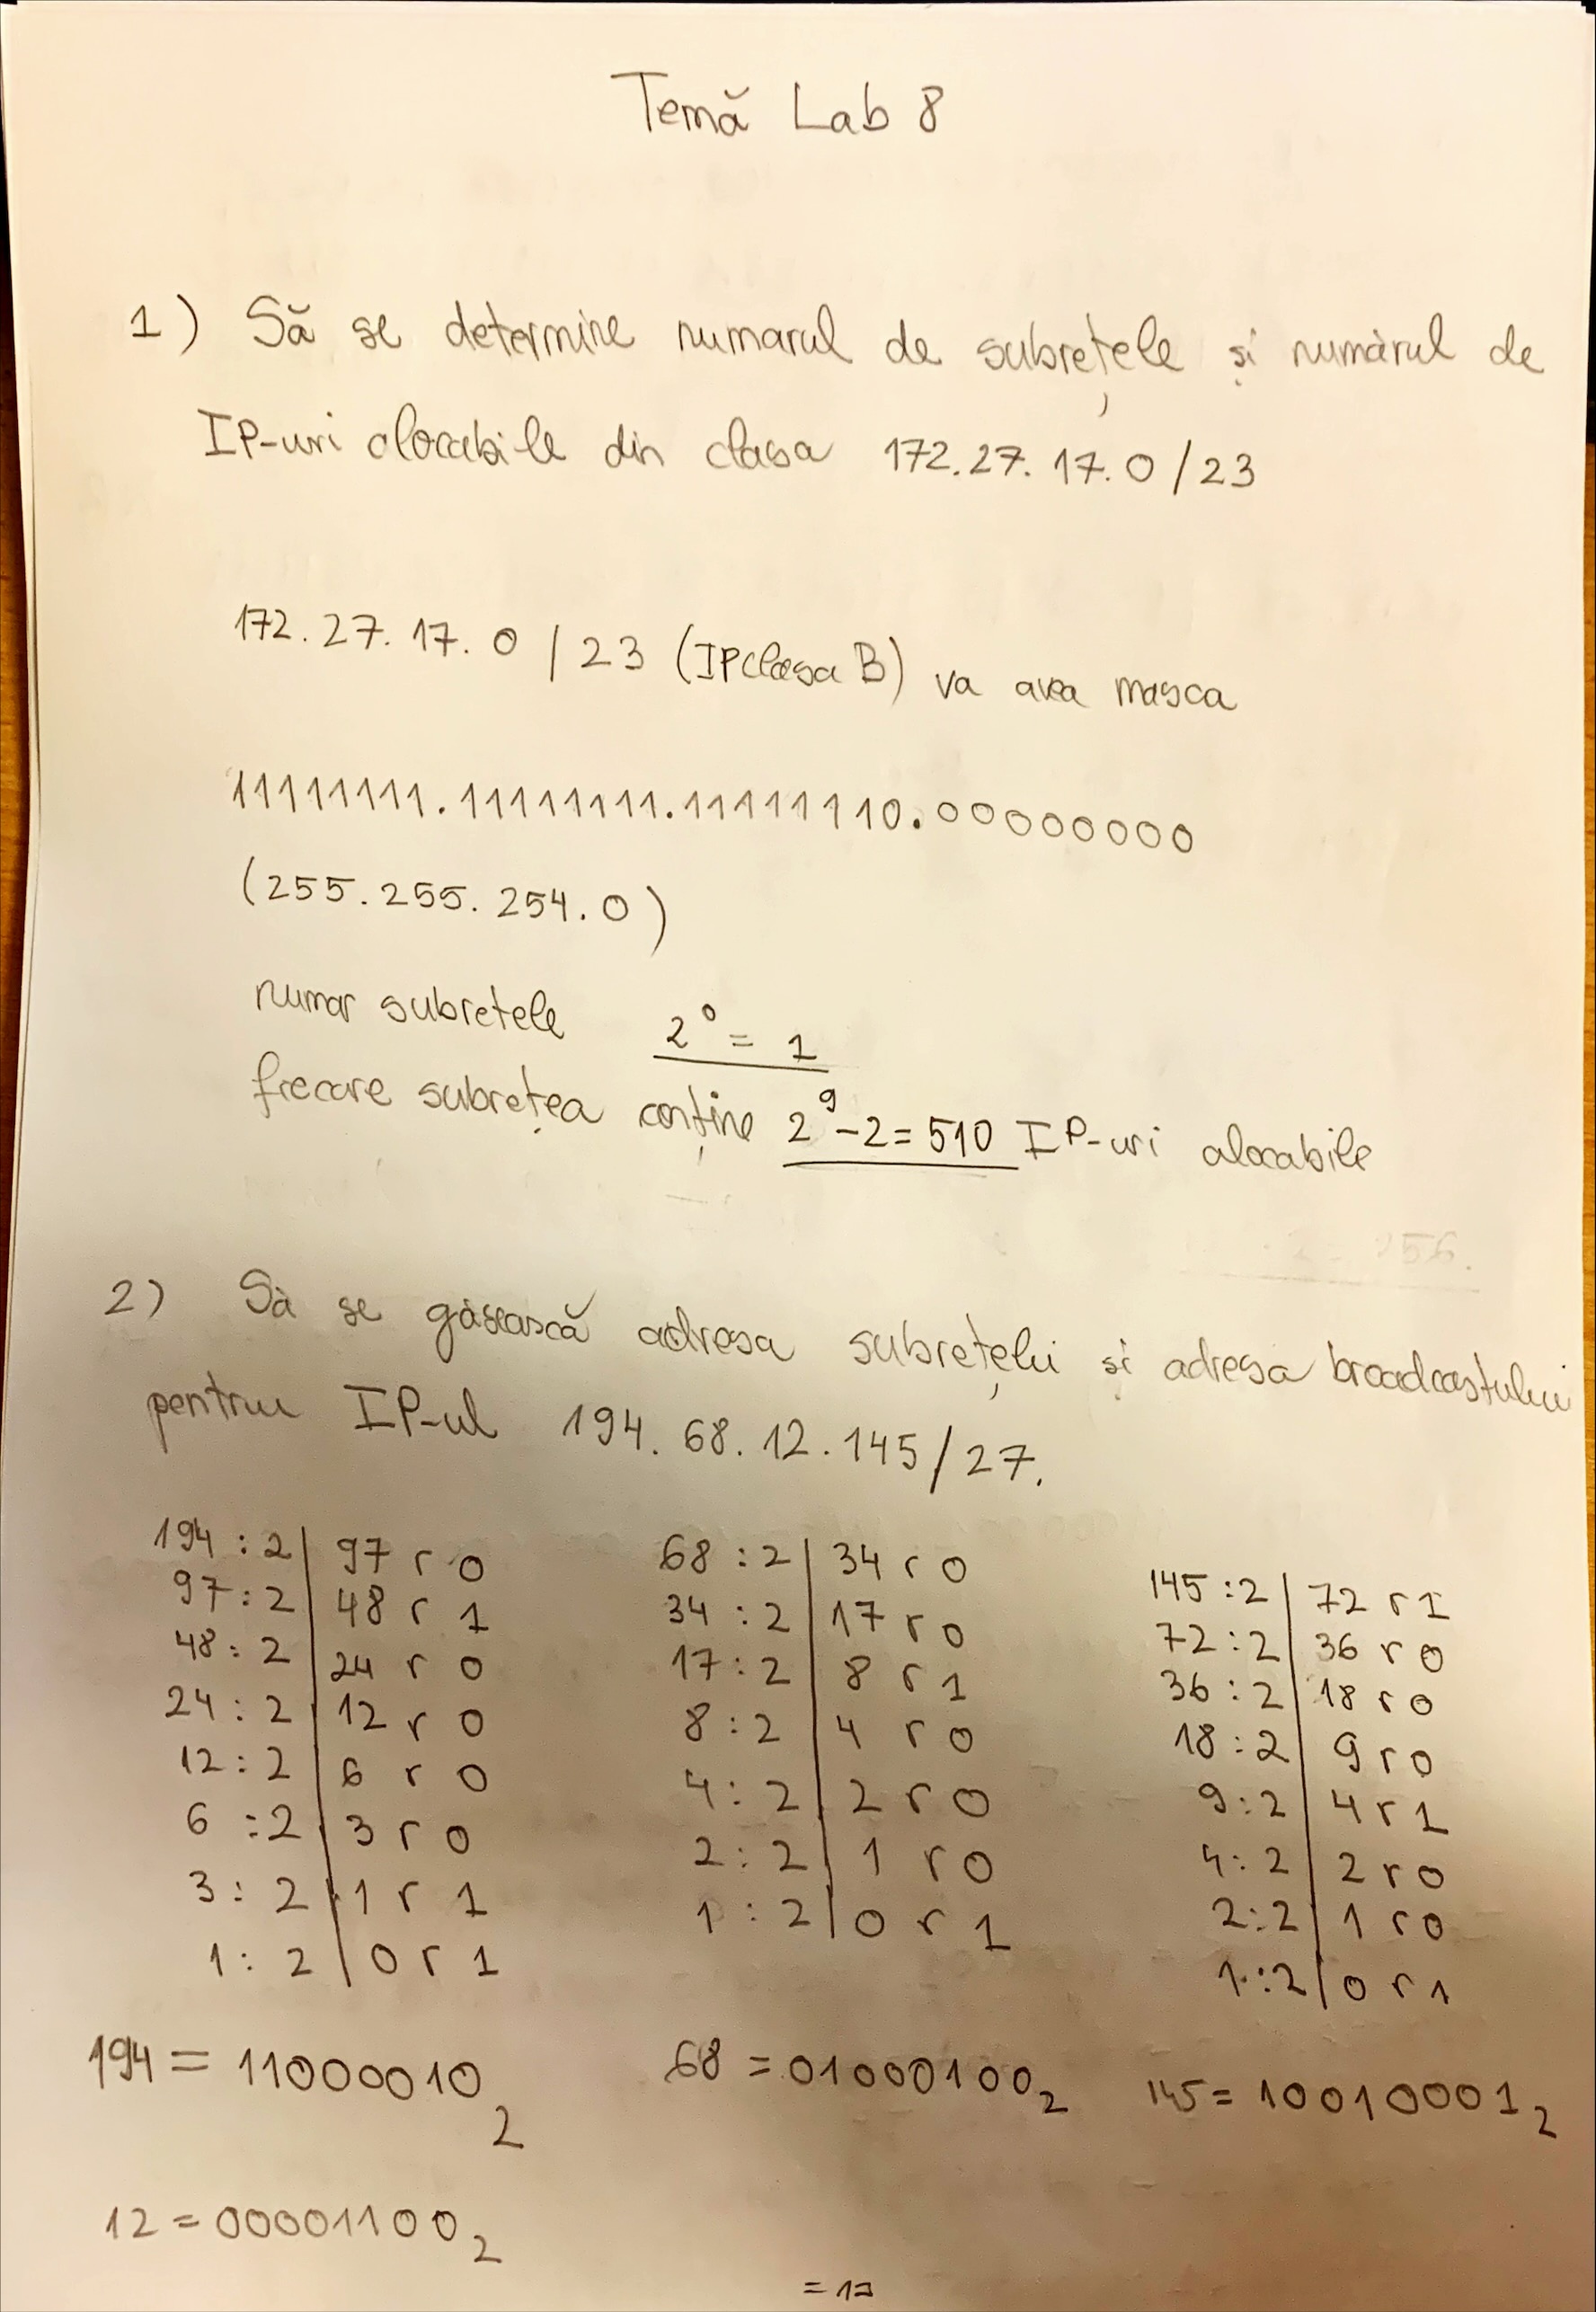 Temă Lab 8
1) Să se determine numarul de subrețele și numărul de
IP-uri alocabile din clasa 172.27.17.0/23
172.27.17.0/23 (IP clasa B) va avea masca
11111111.11111111.11111110.00000000
(255.255.254.0)
numar subretele 2⁰ = 1
fiecare subrețea conține 2⁹-2=510 IP-uri alocabile
2) Să se găsească adresa subrețelei și adresa broadcastului
pentru IP-ul 194.68.12.145/27.
194 : 2 | 97 r 0
97 : 2 | 48 r 1
48 : 2 | 24 r 0
24 : 2 | 12 r 0
12 : 2 | 6 r 0
6 : 2 | 3 r 0
3 : 2 | 1 r 1
1 : 2 | 0 r 1
68 : 2 | 34 r 0
34 : 2 | 17 r 0
17 : 2 | 8 r 1
8 : 2 | 4 r 0
4 : 2 | 2 r 0
2 : 2 | 1 r 0
1 : 2 | 0 r 1
145 : 2 | 72 r 1
72 : 2 | 36 r 0
36 : 2 | 18 r 0
18 : 2 | 9 r 0
9 : 2 | 4 r 1
4 : 2 | 2 r 0
2 : 2 | 1 r 0
1 : 2 | 0 r 1
194 = 11000010₂ 68 = 01000100₂ 145 = 10010001₂
12 = 00001100₂